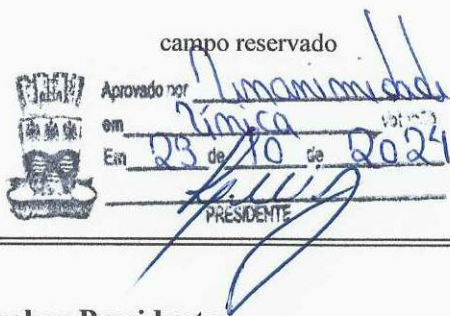 campo reservado
Aprovado por Unanimidade
em Única votação
Em 23 de 10 de 2024
PRESIDENTE
Presidente